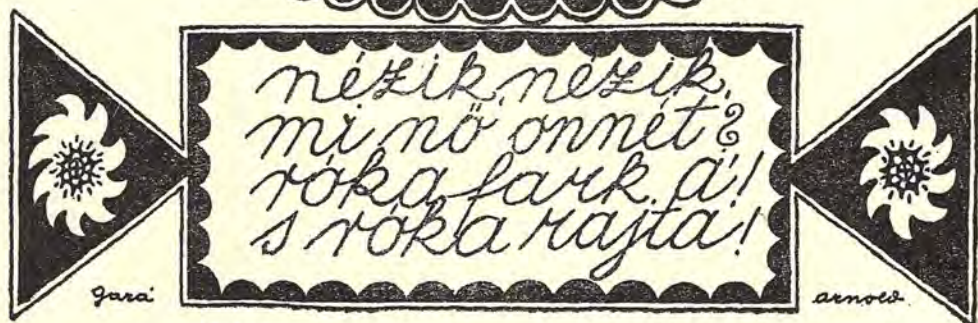 nézik, nézik,
mi nő onnét?
róka fark a'!
s róka rajta!
gara' arnold